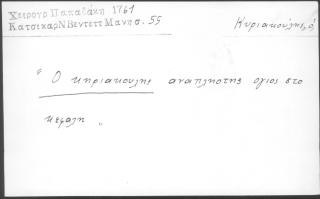 Χειρογρ Παπαδάκη 1761
Κατσικαρ Ν Βεντεττ Μανησ. 55
Κυριακούλης, ὁ
" Ο κηριακουλης αναπλητης ογιος στο
κεφαλη "